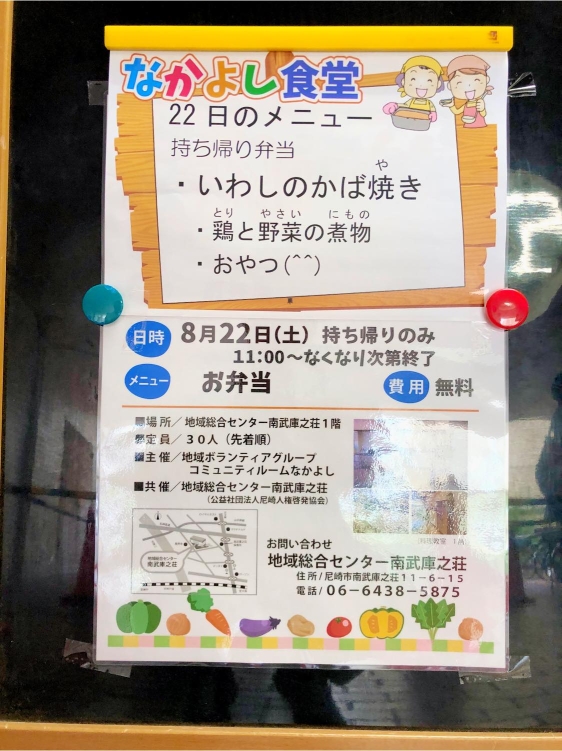 なかよし食堂
22日のメニュー
持ち帰り弁当
・いわしのかば焼き
や
・鶏と野菜の煮物
とり やさい にもの
・おやつ(^^)
日時 8月22日(土) 持ち帰りのみ
11:00〜なくなり次第終了
メニュー お弁当 費用 無料
■場所／地域総合センター南武庫之荘1階
■定員／30人(先着順)
■主催／地域ボランティアグループ
コミュニティルームなかよし
■共催／地域総合センター南武庫之荘
(公益社団法人尼崎人権啓発協会)
地域総合センター
南武庫之荘
お問い合わせ
地域総合センター南武庫之荘
住所／尼崎市南武庫之荘11-6-15
電話／06-6438-5875